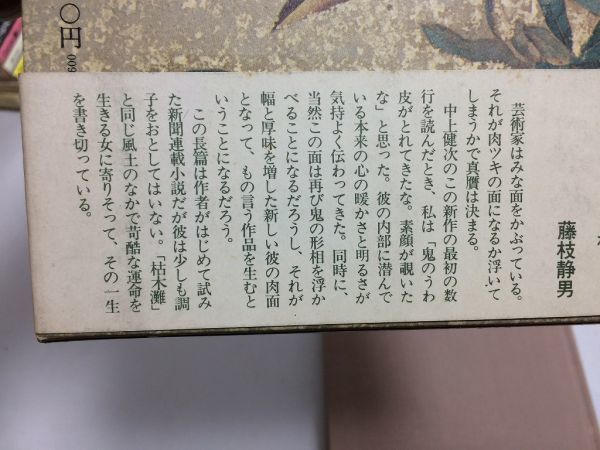 〇円
藤枝静男
芸術家はみな面をかぶっている。
それが肉ツキの面になるか浮いて
しまうかで真贋は決まる。
中上健次のこの新作の最初の数
行を読んだとき、私は「鬼のうわ
皮がとれてきたな。素顔が覗いた
な」と思った。彼の内部に潜んで
いる本来の心の暖かさと明るさが
気持よく伝わってきた。同時に、
当然この面は再び鬼の形相を浮か
べることになるだろうし、それが
幅と厚味を増した新しい彼の肉面
となって、もの言う作品を生むと
いうことになるだろう。
この長篇は作者がはじめて試み
た新聞連載小説だが彼は少しも調
子をおとしてはいない。「枯木灘」
と同じ風土のなかで苛酷な運命を
生きる女に寄りそって、その一生
を書き切っている。